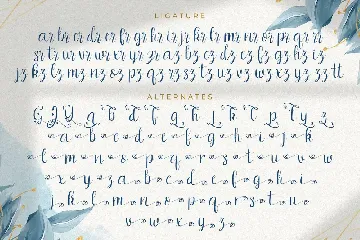 LIGATURE
ar br cr dr er fr gr hr ir jr kr lr mr nr or pr qr rr
sr tr ur vr wr xr yr zr az bz cz dz ez fz gz hz iz
jz kz lz mz nz oz pz qz rz sz tz uz vz wz xz yz zz tt
ALTERNATES
a b c d e f g h i j k
l m n o p q r s t u v w
x y z a b c d e f g h i
j k l m n o p q r s t u
v w x y z